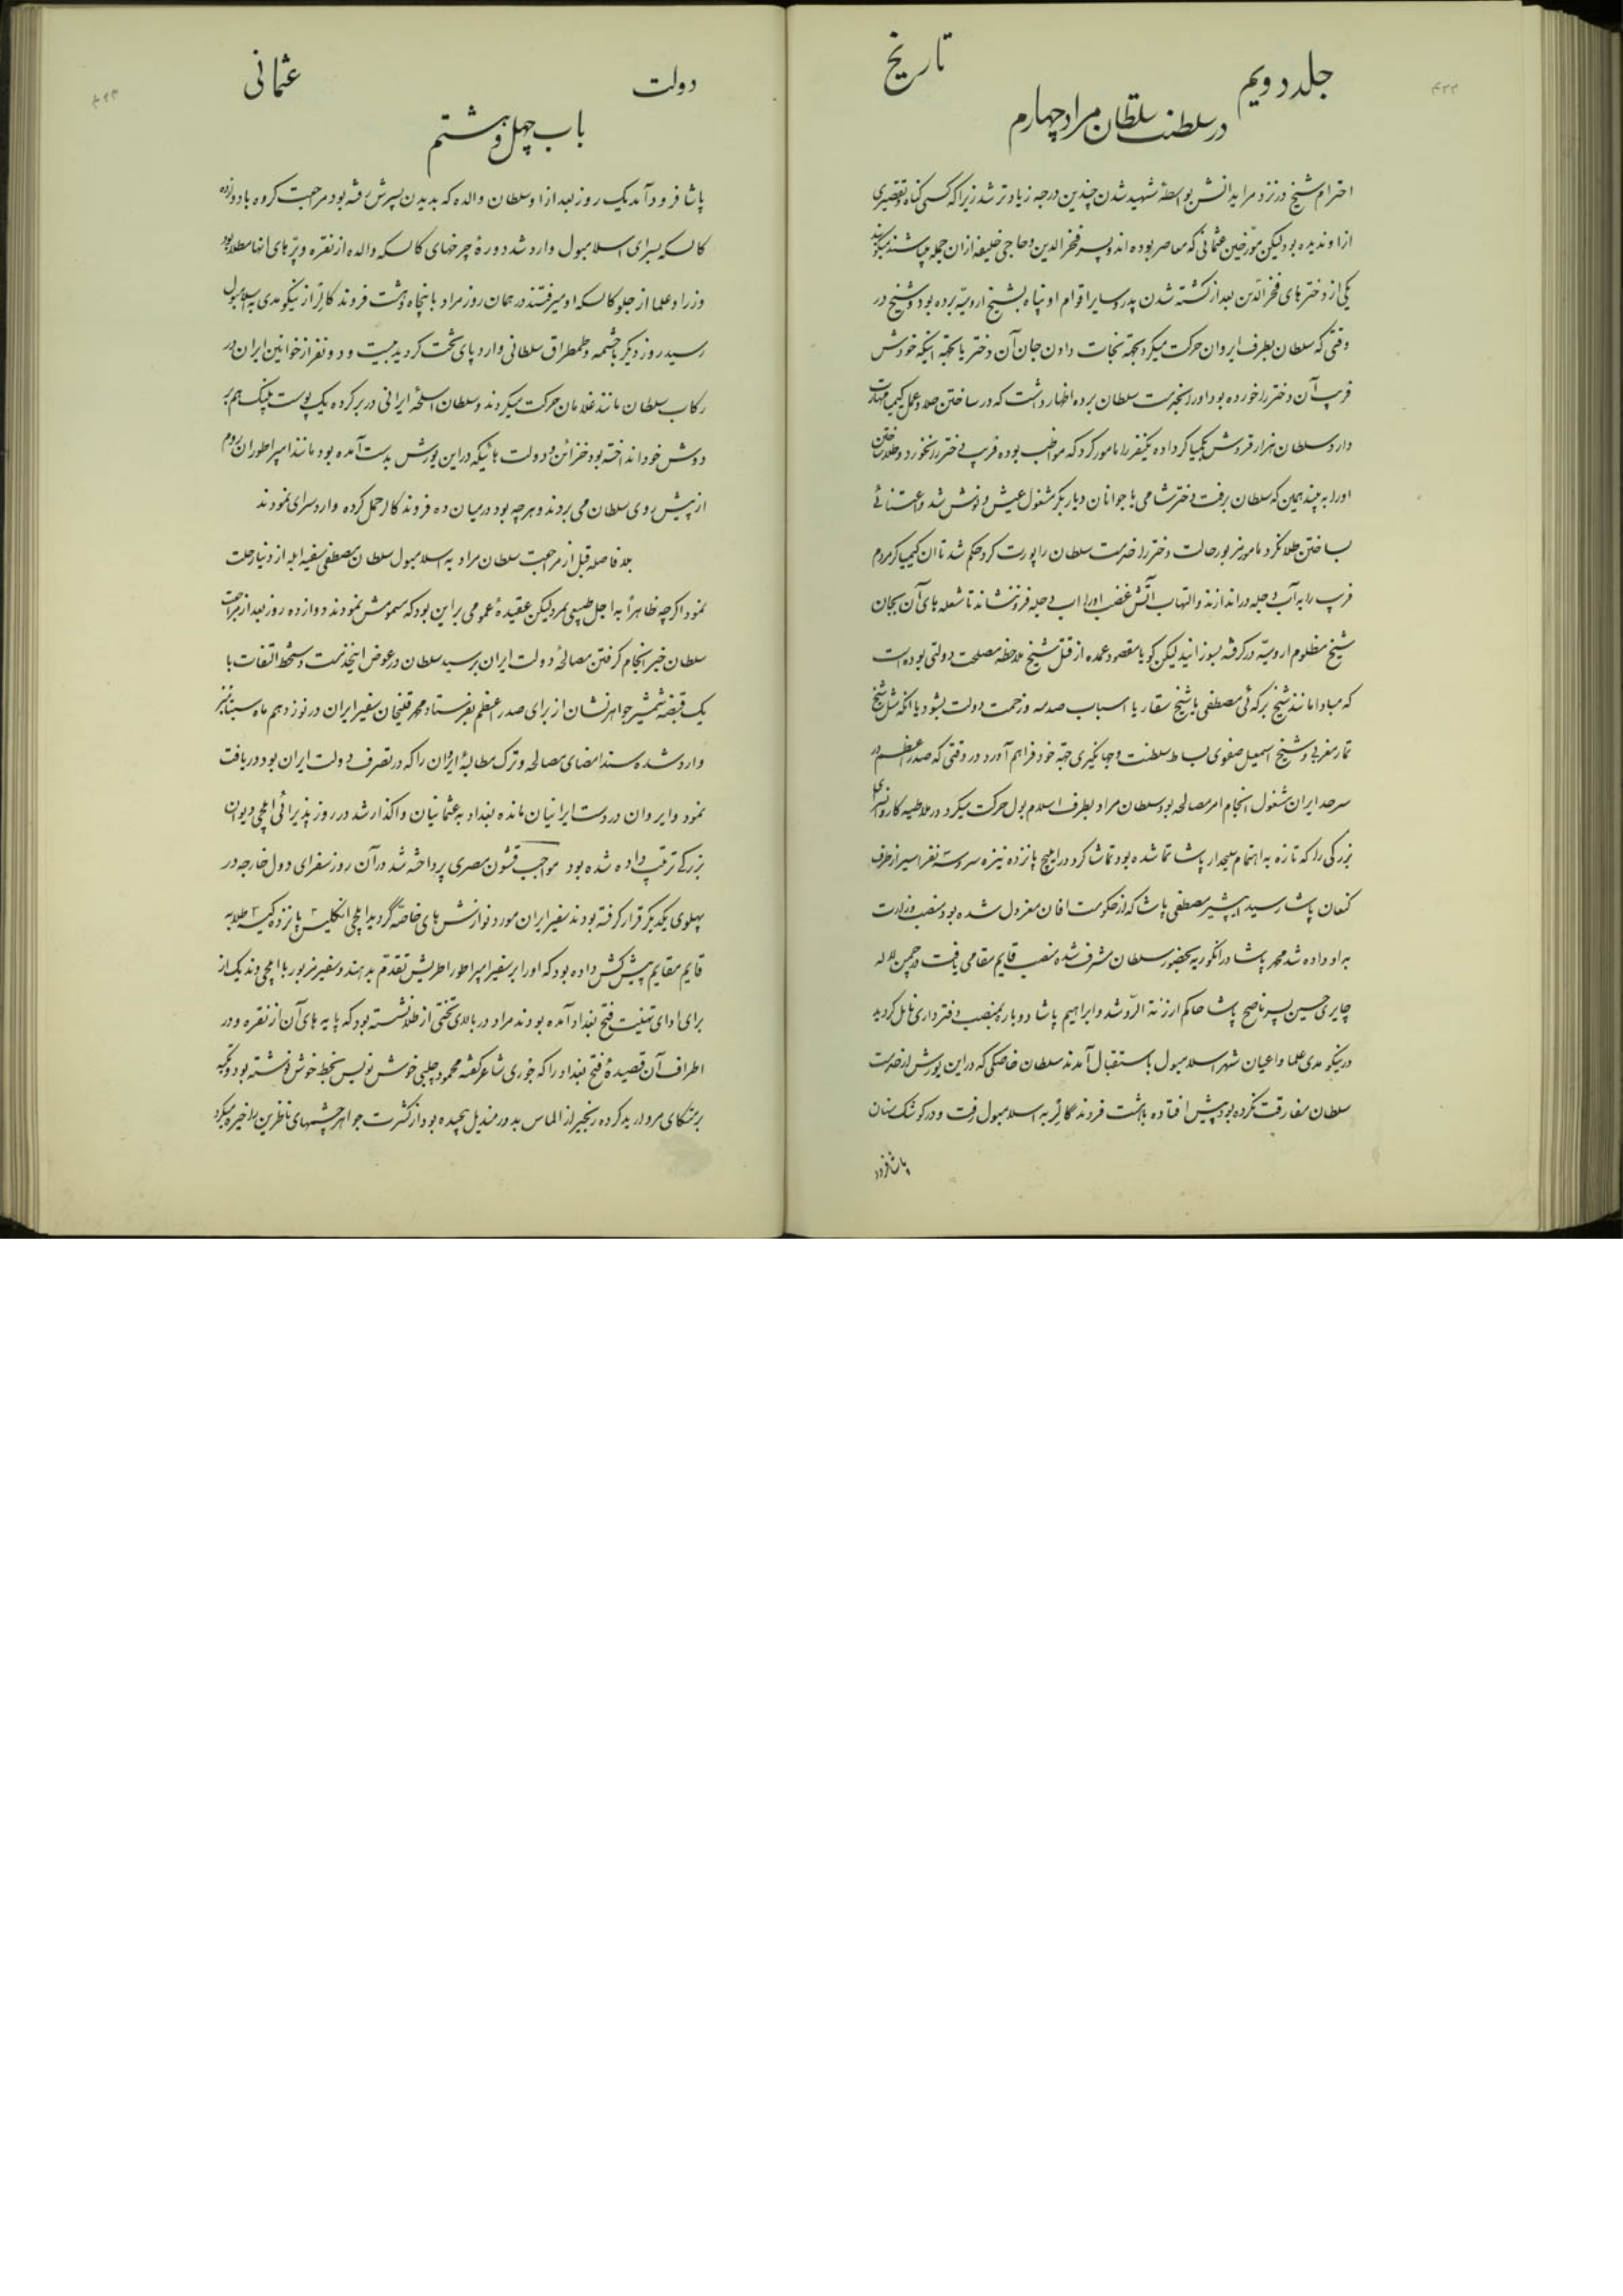 جلد دویم
تاریخ
در سلطنت سلطان مراد چهارم
احترام شیخ در نزد مریدانش بواسطهٔ شهید شدن چندین درجه زیادتر شد زیرا که کسی گناه و تقصیری
از او ندیده بود لیکن مورّخین عثمانی که معاصر بوده اند و پسر فخرالدین و حاجی خلیفه از آن جمله میباشند میگویند
یکی از دخترهای فخرالدّین بعد از کشته شدن پدر و سایر اقوام او پناه بشیخ ارومیّه برده بود و شیخ در
وقتی که سلطان بطرف ایروان حرکت میکرد بجهة نجات دادن جان آن دختر یا بجهة اینکه خودش
فریب آن دختر را خورده بود او را بخدمت سلطان برده اظهار داشت که در ساختن طلا و عمل کیمیا مهارت
دارد سلطان هزار قروش بکیمیاگر داده یکنفر را مامور کرد که مواظب بوده فریب دختر را نخورد و طلا ساختن
او را به بیند همین که سلطان برفت دختر شامی با جوانان دیاربکر مشغول عیش و نوش شد و اعتنائی
بساختن طلا نکرد مامور مزبور حالت دختر را خدمت سلطان راپورت کرد حکم شد تا آن کیمیاگر مردم
فریب را به آب دجله دراندازند و التهاب آتش غضب او را آب دجله فرو ننشاند تا شعله های آن بجان
شیخ مظلوم ارومیّه در گرفته بسوزانید لیکن گویا مقصود عمده از قتل شیخ ملاحظه مصلحت دولتی بوده است
که مبادا مانند شیخ برکه ئی مصطفی یا شیخ سقاریا اسباب صدمه و زحمت دولت بشود یا آنکه مثل شیخ
تمار مغربی و شیخ اسمعیل صفوی بساط سلطنت و جهانگیری جهة خود فراهم آورد در وقتی که صدر اعظم در
سرحد ایران مشغول انجام امر مصالحه بود سلطان مراد بطرف اسلامبول حرکت میکرد در ملاطیه کاروانسرای
بزرگی را که تازه به اهتمام سلحدار پاشا تمام شده بود تماشا کرد در ابیج پانزده نیزه سر و سه نفر اسیر از طرف
کنعان پاشا رسید ایپشیر مصطفی پاشا که از حکومت افان معزول شده بود منصب وزارت
به او داده شد محمد پاشا در انگوریه بحضور سلطان مشرف شده منصب قایم مقامی یافت در چمن لاله
چایری حسین پسر ناصح پاشا حاکم ارزنة الرّوم شد و ابراهیم پاشا دوباره بمنصب دفترداری نایل گردید
در نیکو مدی علما و اعیان شهر اسلامبول باستقبال آمدند سلطان خاصکی که در این یورش از خدمت
سلطان مفارقت نکرده بود پیش افتاده با هشت فروند گالر به اسلامبول رفت و در کوشک سنان
پاشا فرود
دولت
عثمانی
باب چهل و هشتم
پاشا فرود آمد یک روز بعد از او سلطان والده که بدیدن پسرش رفته بود مراجعت کرده با دوازده
کالسکه بسرای اسلامبول وارد شد دورهٔ چرخهای کالسکه والده از نقره و پرّهای آنها مطلا بود
وزرا و علما از جلو کالسکه او میرفتند در همان روز مراد با پنجاه و هشت فروند گالر از نیکو مدی به اسلامبول
رسید روز دیگر با حشمه و طمطراق سلطانی وارد پای تخت گردید بیست و دو نفر از خوانین ایران در
رکاب سلطان مانند غلامان حرکت میکردند و سلطان اسلحهٔ ایرانی در بر کرده یک پوست پلنگ هم بر
دوش خود انداخته بود خزائن و دولت هائیکه در این یورش بدست آمده بود مانند امپراطوران روم
از پیش روی سلطان می بردند و هرچه بود در میان ده فروند گالر حمل کرده وارد سرای نمودند
بلافاصله قبل از مراجعت سلطان مراد به اسلامبول سلطان مصطفی سفیه ابله از دنیا رحلت
نمود اگرچه ظاهراً به اجل طبیعی بمرد لیکن عقیدهٔ عمومی بر این بود که مسمومش نمودند دوازده روز بعد از مراجعت
سلطان خبر انجام گرفتن مصالحهٔ دولت ایران برسید سلطان در عوض اینخدمت دستخط التفات با
یک قبضه شمشیر جواهرنشان از برای صدر اعظم بفرستاد محمد قلیخان سفیر ایران در نوزدهم ماه سپتامبر
وارد شده سند امضای مصالحه و ترک مطالبهٔ ایروان را که در تصرف دولت ایران بود دریافت
نمود و ایروان در دست ایرانیان مانده بغداد به عثمانیان واگذار شد در روز پذیرائی ایلچی دیوان
بزرگی ترتیب داده شده بود مواجب قشون مصری پرداخته شد در آن روز سفرای دول خارجه در
پهلوی یکدیگر قرار گرفته بودند سفیر ایران مورد نوازش های خاصّه گردید ایلچی انگلیس پانزده کیسه طلا به
قایم مقام پیش کش داده بود که او را بر سفیر امپراطور اطریش تقدّم بدهند و سفیر مزبور با ایلچی وندیک از
برای ادای تهنیت فتح بغداد آمده بودند مراد در بالای تختی از طلا نشسته بود که پایه های آن از نقره و در
اطراف آن قصیدهٔ فتح بغداد را که جوری شاعر گفته محمود چلبی خوش نویس بخط خوش نوشته بود و تکیه
بر متکای مروارید کرده زنجیر از الماس بدور مندیل پیچیده بود از کثرت جواهر چشمهای ناظرین را خیره میکرد